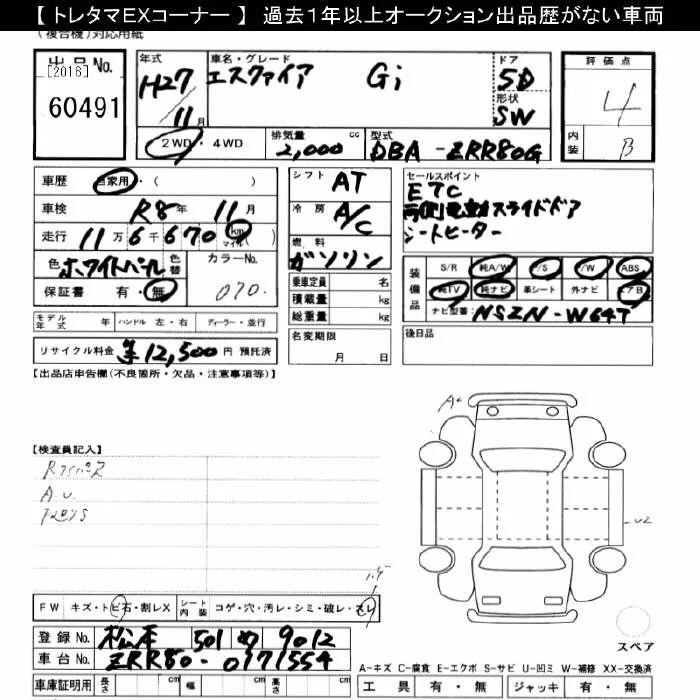 【 トレタマEXコーナー 】 過去1年以上オークション出品歴がない車両
(複合機)対応用紙
出品No.
[2016]
60491
年式 H27/11月
車名・グレード エスクァイア Gi
ドア 5D
形状 SW
評価点 4
内装 B
2WD・4WD
排気量 2,000 cc
型式 DBA-ZRR80G
車歴 自家用・( )
車検 R8年 11月
走行 11万6千670 km マイル( )
色 ホワイトパール 色替 カラーNo. 070.
保証書 有・無
シフト AT
冷房 A/C
燃料 ガソリン
乗車定員 名
積載量 kg
総重量 kg
セールスポイント
ETC
両側電動スライドドア
シートヒーター
装備品
S/R 純A/W P/S P/W ABS
純TV 純ナビ 革シート 外ナビ エアB
ナビ型番: NSZN-W64T
モデル年式 年 ハンドル 左・右 ディーラー・並行
名変期限 月 日
後日品
リサイクル料金 ¥12,500円 預託済
【出品店申告欄(不良箇所・欠品・注意事項等)】
【検査員記入】
Rワイパーズ
A.U.
A
U2
FW キズ・トビ石・割レX シート内装 コゲ・穴・汚レ・シミ・破レ・スレ
登録No. 松本 501 め 9012
車台No. ZRR80-0171554
スペア
A-キズ C-腐食 E-エクボ S-サビ U-凹ミ W-補修 XX-交換済
車庫証明用 長さ cm 幅 cm 高さ cm
工具 有・無 ジャッキ 有・無